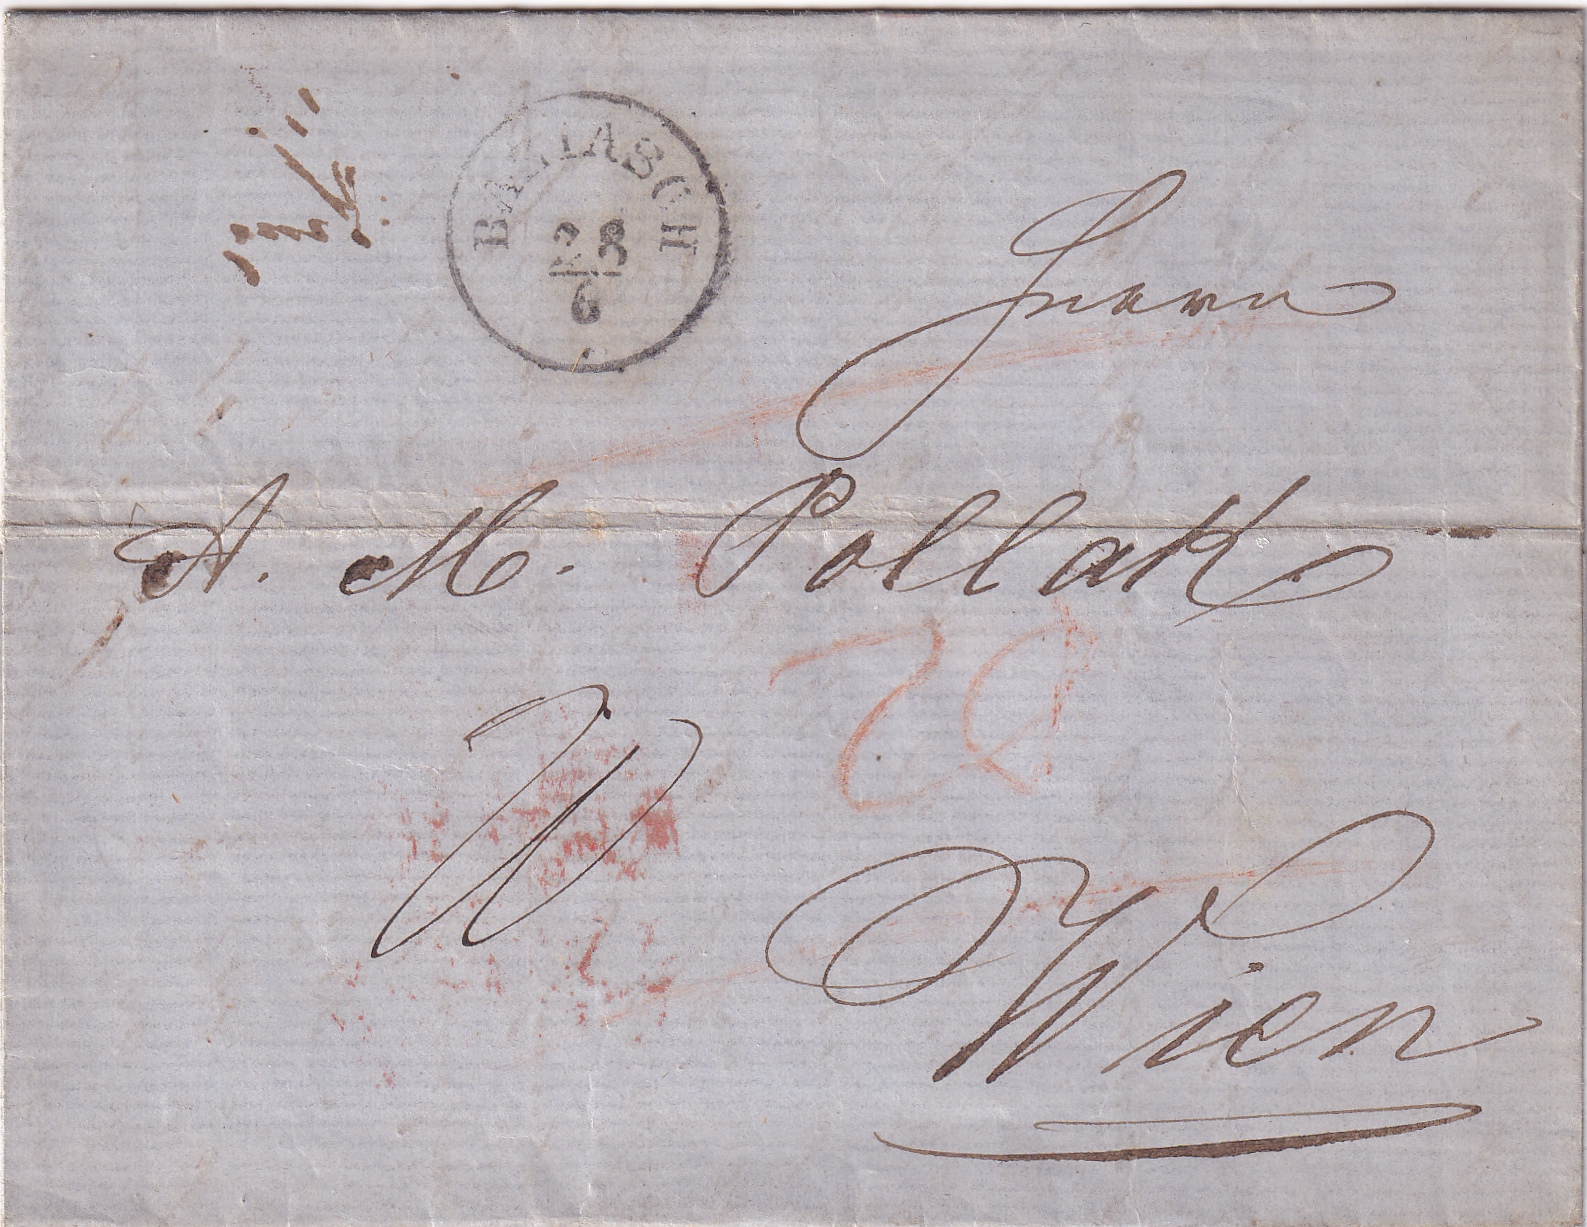 BAZIASCH
28
6
Herrn
A. M. Pollak
W Wien